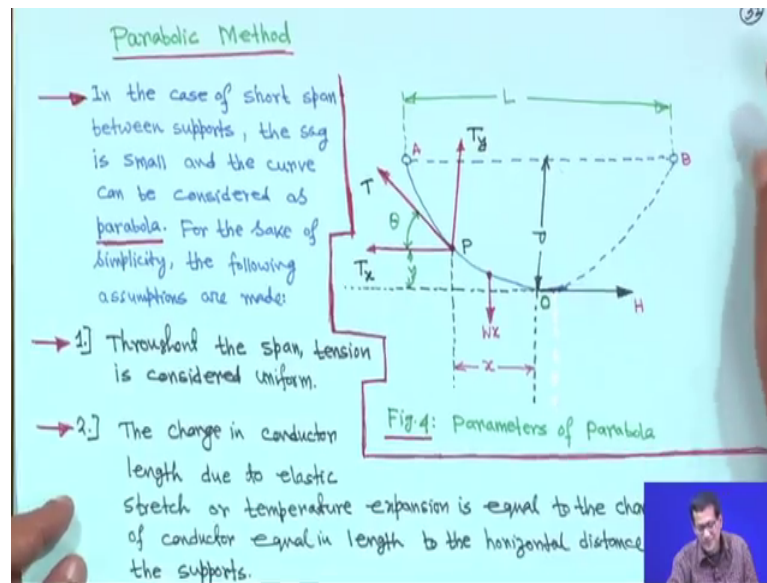 34
Parabolic Method
In the case of short span
between supports, the sag
is small and the curve
can be considered as
parabola. For the sake of
simplicity, the following
assumptions are made:
1.] Throughout the span, tension
is considered uniform.
2.] The change in conductor
length due to elastic
stretch or temperature expansion is equal to the
of conductor equal in length to the horizontal distance
the supports.
L
A
B
Ty
T
θ
d
P
Tx
y
O
H
Wx
x
Fig.4: Parameters of Parabola